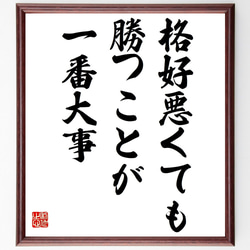 格好悪くても
勝つことが
一番大事